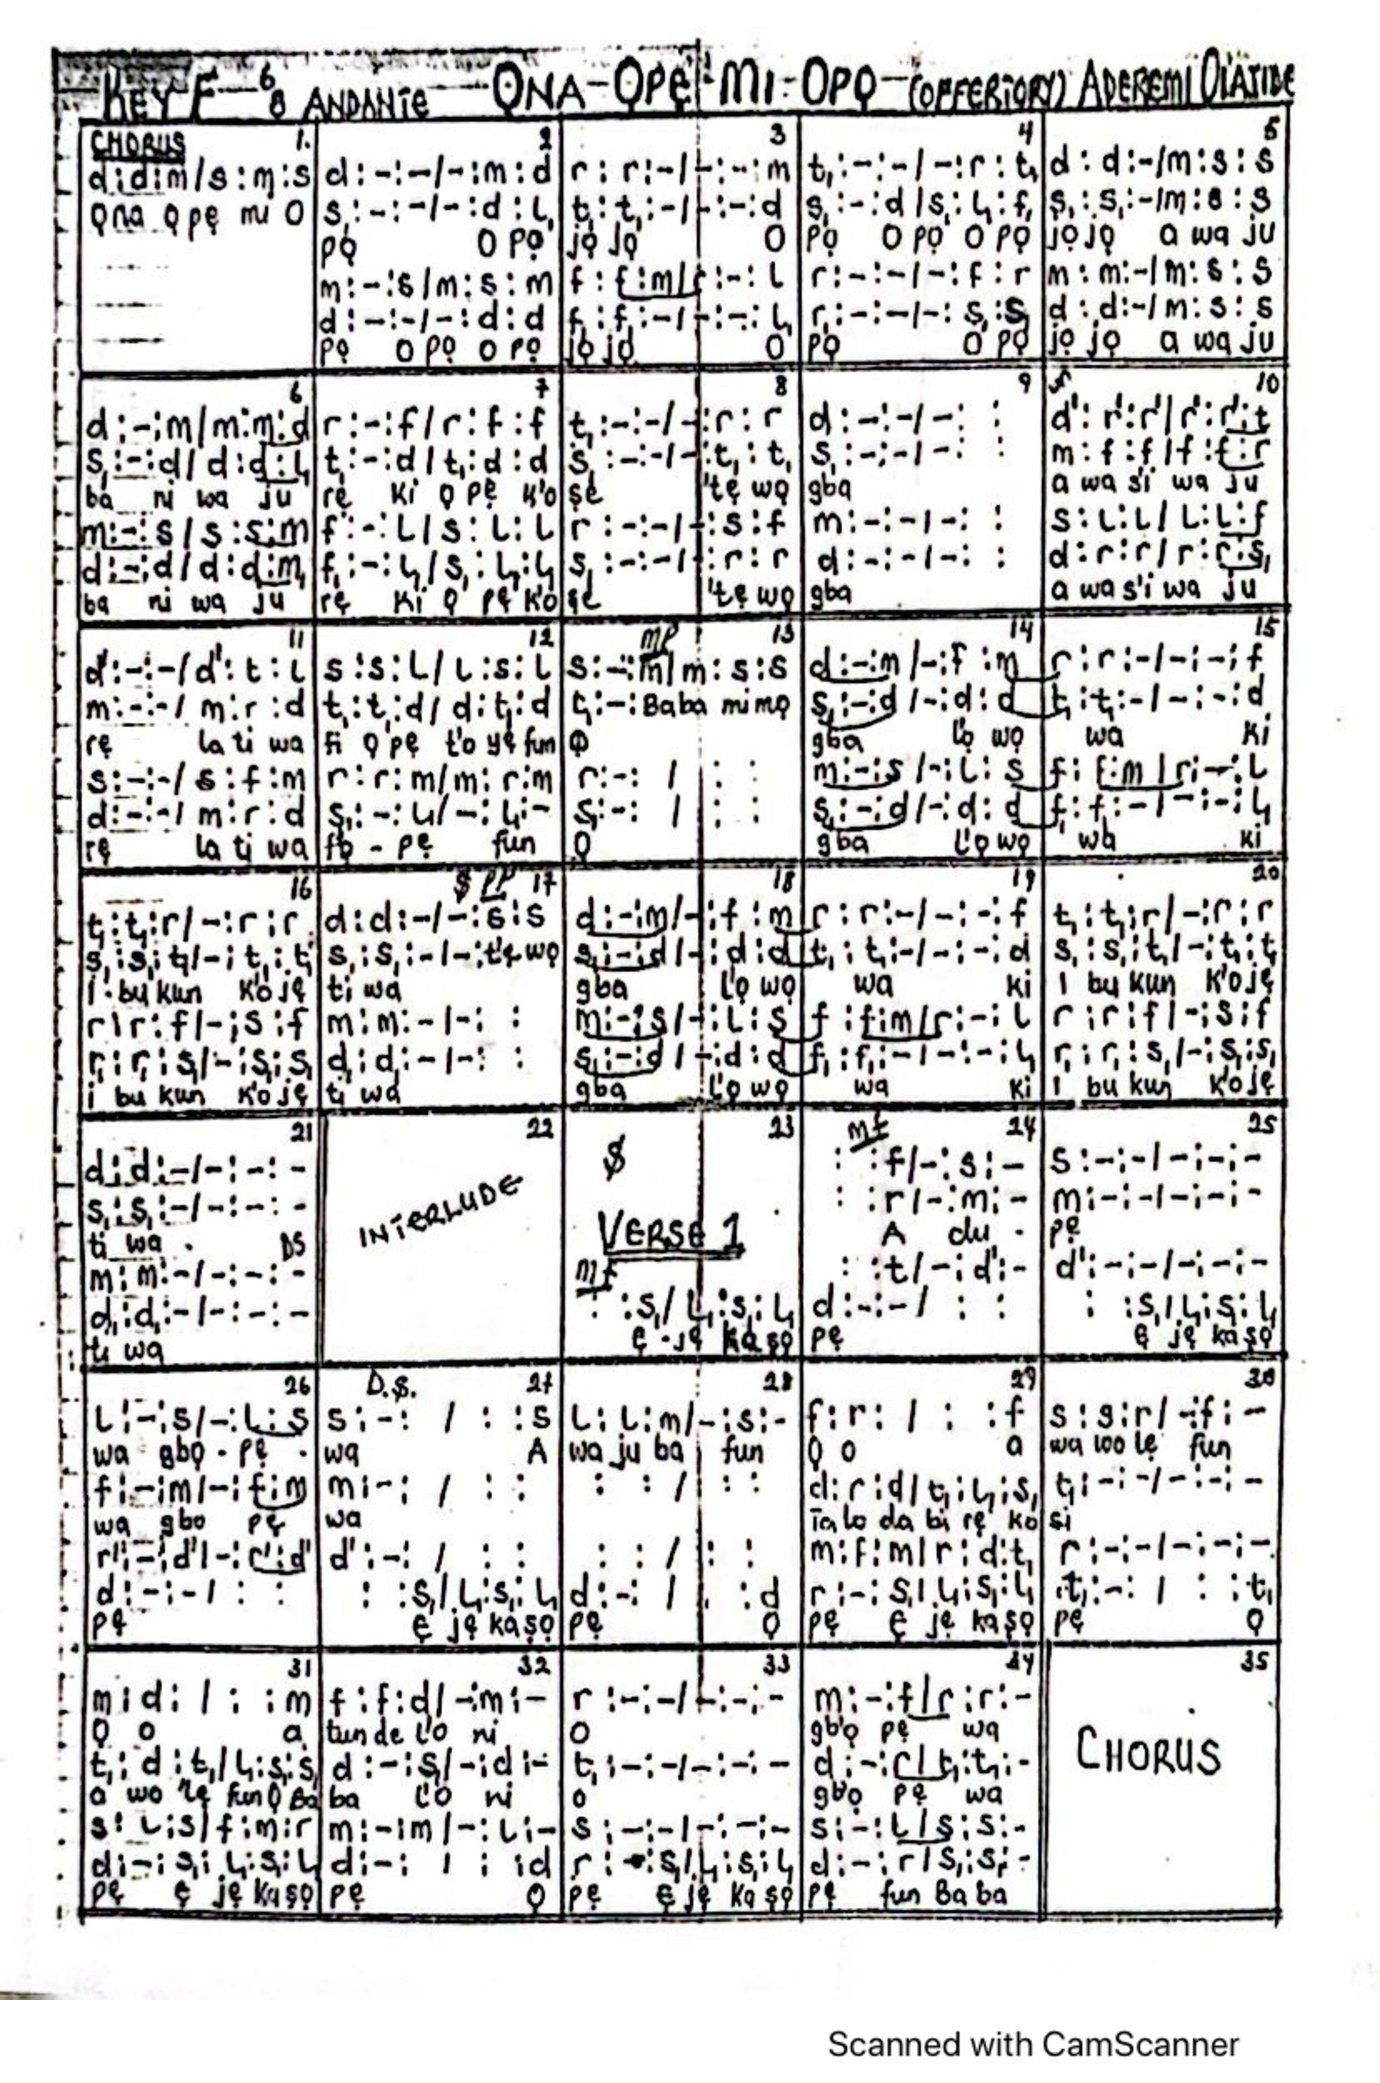 KEY F 6/8 ANDANTE ỌNA-ỌPẸ-MI-OPỌ-(OFFERTORY) ADEREMI OLATIDE
CHORUS 1.
d:d:m/s:m:s
Ọna ọpẹ mi O
2
d:-:-/-:m:d
s,:-:-/-:d:l,
pọ O pọ
m:-:s/m:s:m
d:-:-/-:d:d
pọ O pọ O pọ
3
r:r:-/-:-:m
t,:t,:-/-:-:d
jọ jọ O
f:f:m/r:-:l
f,:f,:-/-:-:l,
jọ jọ O
4
t,:-:-/-:r:t,
s,:-:d/s,:l,:f,
pọ O pọ O pọ
r:-:-/-:f:r
r,:-:-/-:s,:s,
pọ O pọ
5
d:d:-/m:s:s
s,:s,:-/m:s:s
jọ jọ a wa ju
m:m:-/m:s:s
d:d:-/m:s:s
jọ jọ a wa ju
6
d:-:m/m:m:d
s,:-:d/d:d:l,
ba ni wa ju
m:-:s/s:s:m
d:-:d/d:d:m,
ba ni wa ju
7
r:-:f/r:f:f
t,:-:d/t,:d:d
rẹ ki ọ pẹ k'o
f:-:l/s:l:l
f,:-:l,/s,:l,:l,
rẹ ki ọ pẹ k'o
8
t,:-:-/-:r:r
s,:-:-/-:t,:t,
ṣe 'tẹ wọ
r:-:-/-:s:f
s,:-:-/-:r:r
ṣe 'tẹ wọ
9
d:-:-/-: :
s,:-:-/-: :
gba
m:-:-/-: :
d:-:-/-: :
gba
f 10
d':r':r'/r':r':t
m:f:f/f:f:r
a wa s'i wa ju
s:l:l/l:l:f
d:r:r/r:r:s,
a wa s'i wa ju
11
d':-:-/d':t:l
m:-:-/m:r:d
rẹ la ti wa
s:-:-/s:f:m
d:-:-/m:r:d
rẹ la ti wa
12
s:s:l/l:s:l
t,:t,:d/d:t,:d
fi ọ pẹ t'o yẹ fun
r:r:m/m:r:m
s,:-:l,/-:l,:-
fọ - pẹ fun
mp 13
s:-:m/m:s:s
t,:-:Baba mi mọ
Ọ
r:-: / : :
s,:-: / : :
Ọ
14
d:-:m/-:f:m
s,:-:d/-:d:d
gba l'ọ wọ
m:-:s/-:l:s
s,:-:d/-:d:d
gba l'ọ wọ
15
r:r:-/-:-:f
t,:t,:-/-:-:d
wa ki
f:f:m/r:-:l
f,:f,:-/-:-:l,
wa ki
16
t,:t,:r/-:r:r
s,:s,:t,/-:t,:t,
i bu kun k'o jẹ
r:r:f/-:s:f
r,:r,:s,/-:s,:s,
i bu kun k'o jẹ
$ pp 17
d:d:-/-:s:s
s,:s,:-/-:t'ẹ wọ
ti wa
m:m:-/-: :
d,:d,:-/-: :
ti wa
18
d:-:m/-:f:m
s,:-:d/-:d:d
gba l'ọ wọ
m:-:s/-:l:s
s,:-:d/-:d:d
gba l'ọ wọ
19
r:r:-/-:-:f
t,:t,:-/-:-:d
wa ki
f:f:m/r:-:l
f,:f,:-/-:-:l,
wa ki
20
t,:t,:r/-:r:r
s,:s,:t,/-:t,:t,
I bu kun k'o jẹ
r:r:f/-:s:f
r,:r,:s,/-:s,:s,
I bu kun k'o jẹ
21
d:d:-/-:-:-
s,:s,:-/-:-:-
ti wa DS
m:m:-/-:-:-
d,:d,:-/-:-:-
ti wa
22
INTERLUDE
23
$
VERSE 1
mf
: :s,/l,:s,:l,
Ẹ jẹ ka ṣọ
mf 24
: :f/-:s:-
: :r/-:m:-
A du -
: :t/-:d':-
d:-:-/ : :
pẹ
25
s:-:-/-:-:-
m:-:-/-:-:-
pẹ
d':-:-/-:-:-
: :s,/l,:s,:l,
Ẹ jẹ ka ṣọ
26
l:-:s/-:l:s
wa gbọ - pẹ -
f:-:m/-:f:m
wa gbọ pẹ
r':-:d'/-:r':d'
d:-:-/ : :
pẹ
D.$. 27
s:-: / : :s
wa A
m:-: / : :
wa
d':-: / : :
: :s,/l,:s,:l,
Ẹ jẹ ka ṣọ
28
l:l:m/-:s:-
wa ju ba fun
: : / : :
: : / : :
d:-: / : :d
pẹ Ọ
29
f:r: / : :f
Ọ o a
d:r:d/t,:l,:s,
Ta lo da bi rẹ ko
m:f:m/r:d:t,
r:-:s,/l,:s,:l,
pẹ Ẹ jẹ ka ṣọ
30
s:s:r/-:f:-
wa woo lẹ fun
t,:-:-/-:-:-
si
r:-:-/-:-:-
t,:-: / : :t,
pẹ Ọ
31
m:d: / : :m
Ọ o a
t,:d:t,/l,:s,:s,
a wo 'lẹ fun Ọ Ba
s:l:s/f:m:r
d:-:s,:l,:s,:l,
pẹ ẹ jẹ ka ṣọ
32
f:f:d/-:m:-
tun de l'o ni
d:-:s,/-:d:-
ba l'O ni
m:-:m/-:l:-
d:-: / : :d
pẹ Ọ
33
r:-:-/-:-:-
O
t,:-:-/-:-:-
o
s:-:-/-:-:-
r:-:s,/l,:s,:l,
pẹ Ẹ jẹ ka ṣọ
34
m:-:f/r:r:-
gb'ọ pẹ wa
d:-:r/t,:t,:-
gb'ọ pẹ wa
s:-:l/s:s:-
d:-:r/s,:s,:-
pẹ fun Ba ba
35
CHORUS
Scanned with CamScanner